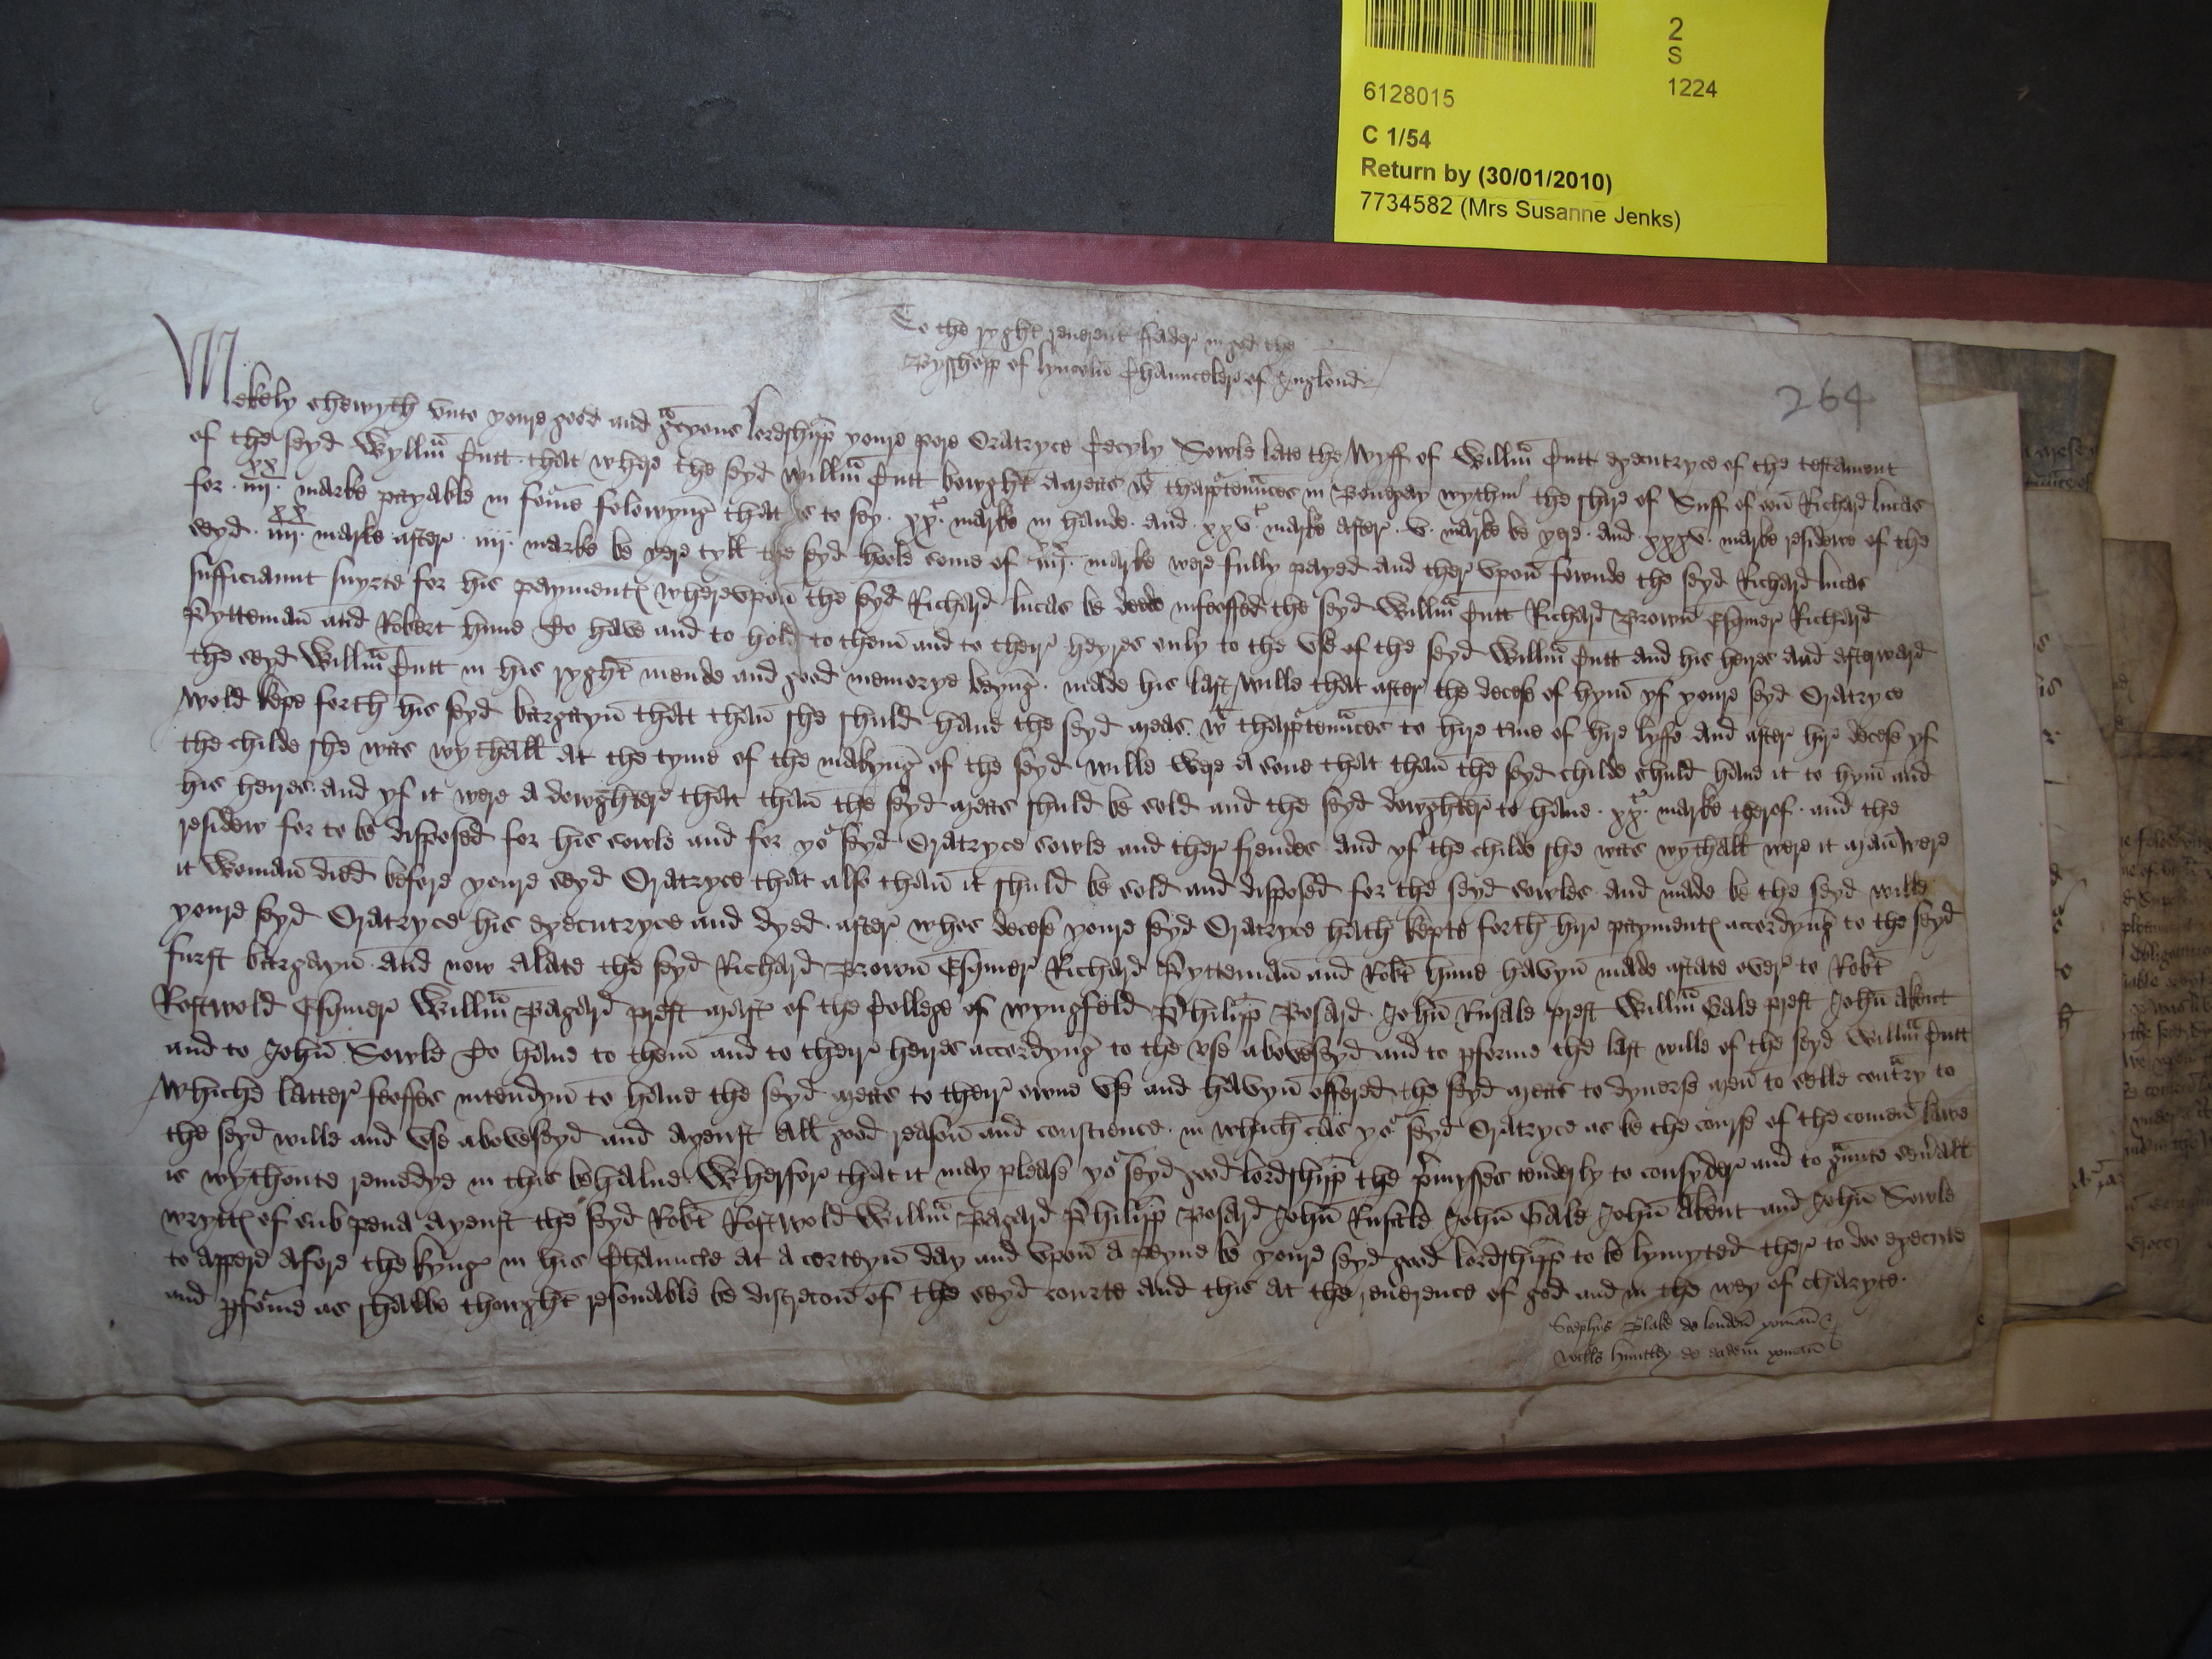 2
S
1224
6128015
C 1/54
Return by (30/01/2010)
7734582 (Mrs Susanne Jenks)
264
To the ryght reuerent fader in god the
Bysshopp of lyncoln̄ Chaunceler of Inglond
Mekely shewyth vnto youre good and gracyous lordshipp̄ youre pore Oratryce Cecyly Sowle late the wyff of Willm̄ Cutt executryce of the testament
of the seyd Wyllm̄ Cutt that where the seyd Willm̄ Cutt bowght a meas wt thapp̄tenn̄ces in Bongay wythin the shire of Suff of oon Richard lucas
for iiijxx marke payable in forme folowynḡ that is to sey xxti marke in hande and xxvti marke after v marke be yere and xxxv marke residewe of the
seyd iiijxx marke after iiij marke be yere tyll the seyd hoole some of iiijxx marke were fully payed and ther vpon̄ fownde the seyd Richard lucas
sufficiannt suyrte for his payment wherevpon̄ the seyd Richard lucas be dede infeoffed the seyd Willm̄ Cutt Richard Brown̄ Esquier Richard
Pytteman̄ and Robert hune To have and to hold to them̄ and to their heyres only to the vse of the seyd Willm̄ Cutt and his heires And afterward
the seyd Willm̄ Cutt in his ryght mende and good memorye beynḡ made his last wille that after the decese of hym̄ yf youre seyd Oratryce
wold kepe forth his seyd bargayn̄ that than̄ she shuld haue the seyd meas wt thapp̄tenn̄ces to hire t̄me of hire lyffe And after hir decese yf
the childe she was wythall at the tyme of the makynḡ of the seyd wille were a sone that than̄ the seyd childe shuld haue it to hym̄ and
his heires and yf it were a dowghter that than̄ the seyd meas shuld be sold and the seyd dowghter to haue xxti marke therof and the
residew for to be disposed for his sowle and for yor seyd Oratryce sowle and ther frendes And yf the childe she was wythall were it man̄ were
it woman̄ died before youre seyd Oratryce that also than̄ it shuld be sold and disposed for the seyd sowles and made be the seyd wille
youre seyd Oratryce his executryce and dyed after whos decese youre seyd Oratryce hath kepte forth hir payment accordynḡ to the seyd
furst bargayn̄ And now alate the seyd Richard Brown̄ Esquier Richard Pytteman̄ and Rob̄t hune havyn̄ made astate over to Rob̄t
Restwold Esquier Willm̄ Bagard prest mast of the College of wyngfeld Philipp̄ Bosard John̄ Rusale prest Willm̄ Gale prest John̄ Akent
and to John̄ Sowle To haue to them̄ and to their heires accordynḡ to the vse aboveseyd and to p̄forme the last wille of the seyd Willm̄ Cutt
whiche latter feoffes intendyn̄ to haue the seyd meas to their owne vse and havyn̄ offered the seyd meas to dyuerse men̄ to selle contrary to
the seyd wille and vse aboveseyd and ayenst all good reason̄ and conscience in which cas yor seyd Oratryce as be the course of the comen̄ lawe
is wythoute remedye in this behalue Wherffor that it may please yor seyd good lordshipp̄ the p̄mysses tenderly to consyder and to graunte seūall
wrytt of sub pena ayenst the seyd Rob̄t Restwold Willm̄ Bagard Philipp̄ Bosard John̄ Rusale John̄ Gale John̄ Akent and John̄ Sowle
to appere afore the kyng in his Chauncle at a certeyn̄ day and vpon̄ a peyne be youre seyd good lordshipp̄ to be lymyted ther to doo execute
and p̄forme as shalbe thowght resonable be discrecion̄ of the seyd courte and this at the reuerence of god and in the wey of charyte
Stephus Blake de london̄ yoman̄
Wills huntley de eadem yoman̄